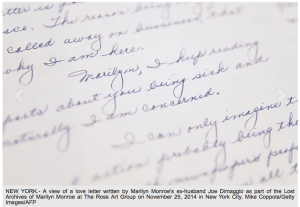 etter is
sec. The reason being
called away on business, that
why I am here.
Marilyn, I keep reading
ports about you being sick and
naturally I am concerned.
I can only imagine t
a action probably being the
newspapers
NEW YORK.- A view of a love letter written by Marilyn Monroe's ex-husband Joe Dimaggio as part of the Lost
Archives of Marilyn Monroe at The Ross Art Group on November 25, 2014 in New York City. Mike Coppola/Getty
Images/AFP